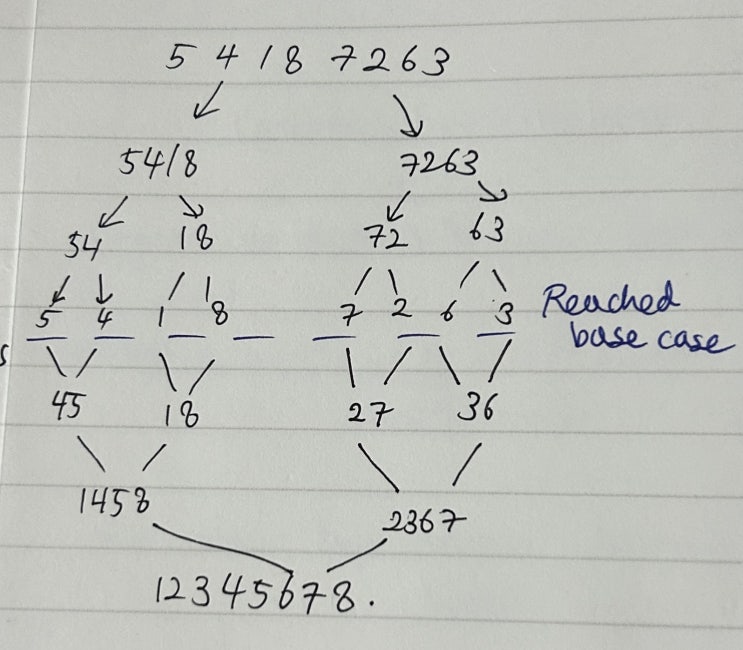 5 4 1 8 7 2 6 3
5418 7263
54 18 72 63
5 4 1 8 7 2 6 3 Reached
base case
45 18 27 36
1458 2367
12345678.